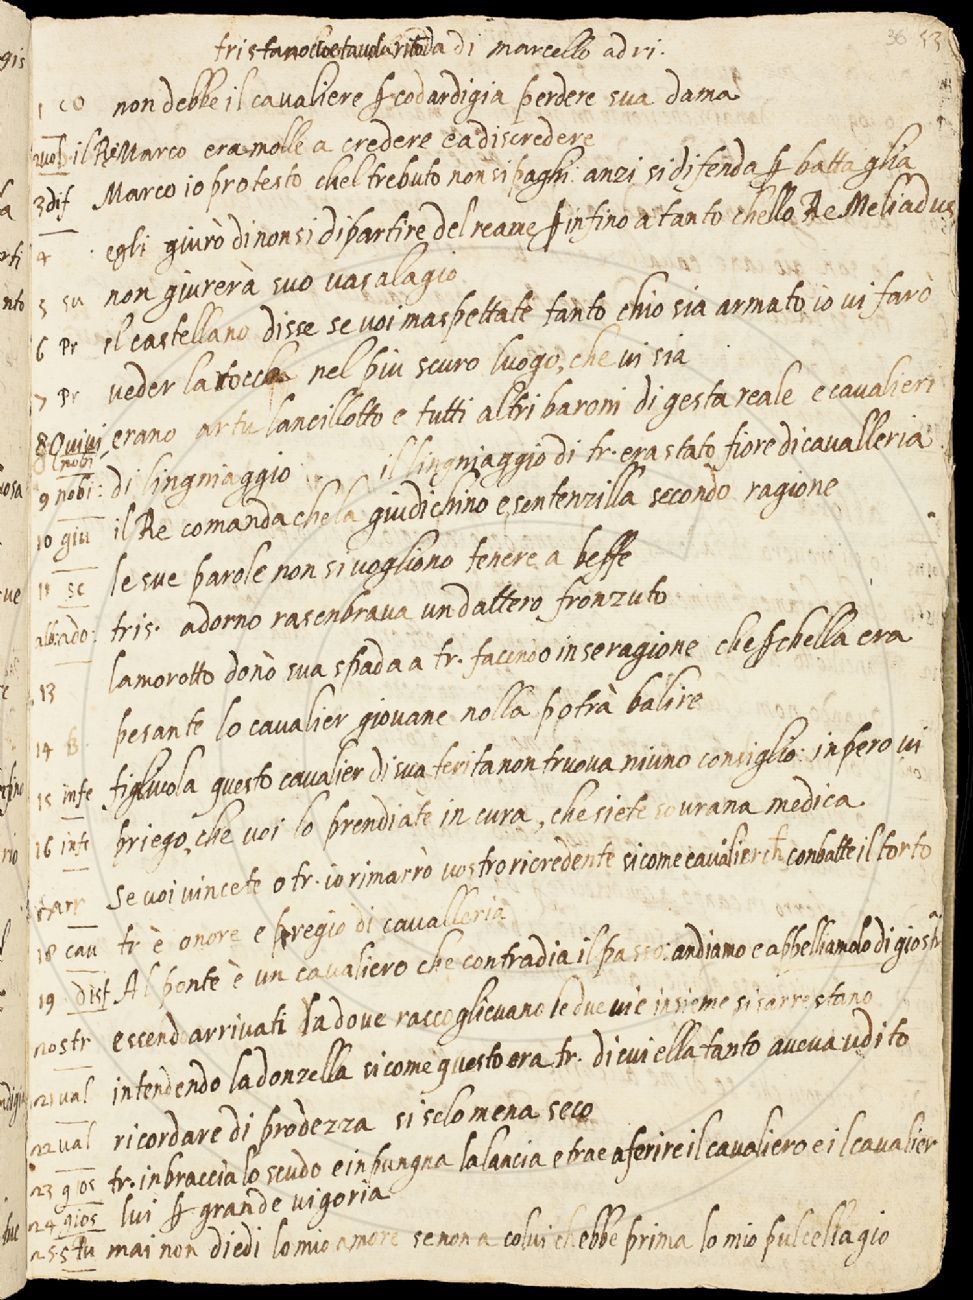 36 53
tristano o tavola ritoda di marcello adri.
1 co non debbe il cavaliere ꝑ codardigia perdere sua dama
2 vol il Re Marco era molle a credere e a discredere
3 dif Marco io protesto chel trebuto non si paghi: anzi si difenda ꝑ battaglia
4 egli giurò di non si dipartire del reame ꝑ infino a tanto chello Re Meliadus
5 su non giurerà suo vasalagio
6 pr el castellano disse se voi maspettate tanto chio sia armato io vi farò
7 pr veder la rocca nel più scuro luogo, che vi sia
8 Quivi erano artu lancillotto e tutti altri baroni di gesta reale e cavalieri
nobi
9 nobi: di lingniaggio il lingniaggio di tr. era stato fiore di cavalleria
10 giu il Re comanda chela giudichino e sentenzilla secondo ragione
11 sc le sue parole non si vogliono tenere a beffe
ado: tris. adorno rasenbrava un dattero fronzuto
13 lamorotto donò sua spada a tr. facendo in se ragione che ꝑchella era
14 pesante lo cavalier giovane nolla potrà balire
15 infe figliuola questo cavalier di sua ferita non truova niuno consiglio: inpero vi
16 infe priego, che voi lo prendiate in cura, che siete sovrana medica
arr Se voi vincete o tr. io rimarrò vostro ricredente sicome cavalier ch conbatte il torto
18 cav tr è onore e pregio di cavalleria
19 disf Al ponte è un cavaliero che contradia il passo: andiamo e abbelliamolo di giostr
20 str essendo arrivati la dove raccoglievano le due vie insieme si sarrestano
21 val intendendo la donzella sicome questo era tr. di cui ella tanto aveva udito
22 val ricordare di prodezza si selo mena seco
23 gios tr. inbraccia lo scudo e inpungna la lancia e trae a ferire il cavaliero e il cavalier
24 gios lui ꝑ grande vigoria
25 stu mai non diedi lo mio amore se non a colui chebbe prima lo mio pulcellagio